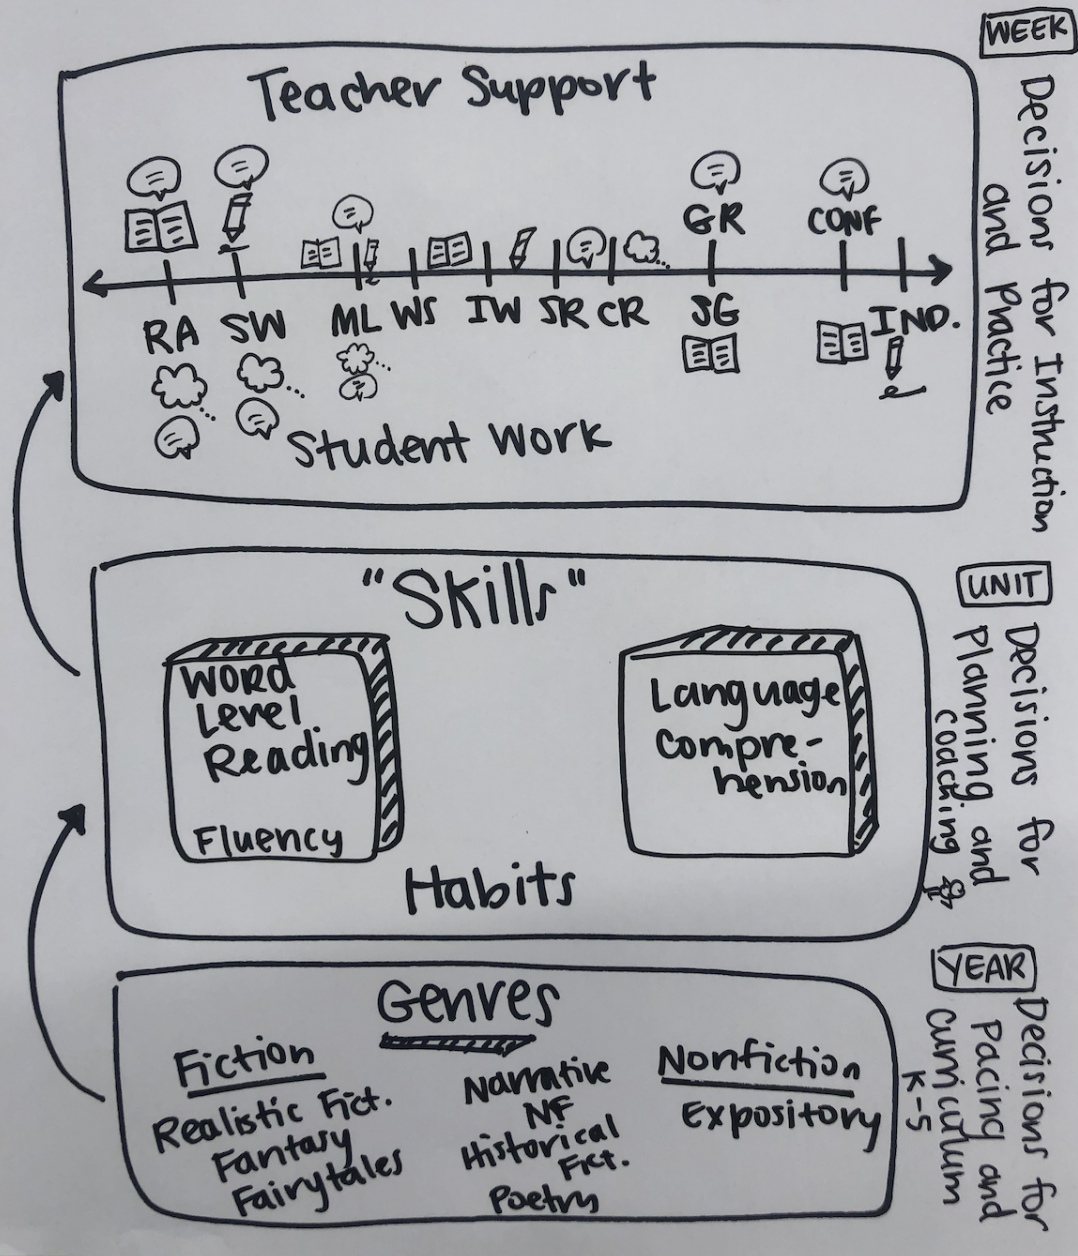 WEEK
Decisions for Instruction
and Practice
Teacher Support
GR
CONF
RA SW ML WS IW SR CR SG IND.
Student Work
UNIT
Decisions for
Planning and
coaching
"Skills"
Word
Level
Reading
Fluency
Language
Compre-
hension
Habits
YEAR
Decisions for
Pacing and
Curriculum
K-5
Genres
Fiction
Realistic Fict.
Fantasy
Fairytales
Narrative
NF
Historical
Fict.
Poetry
Nonfiction
Expository